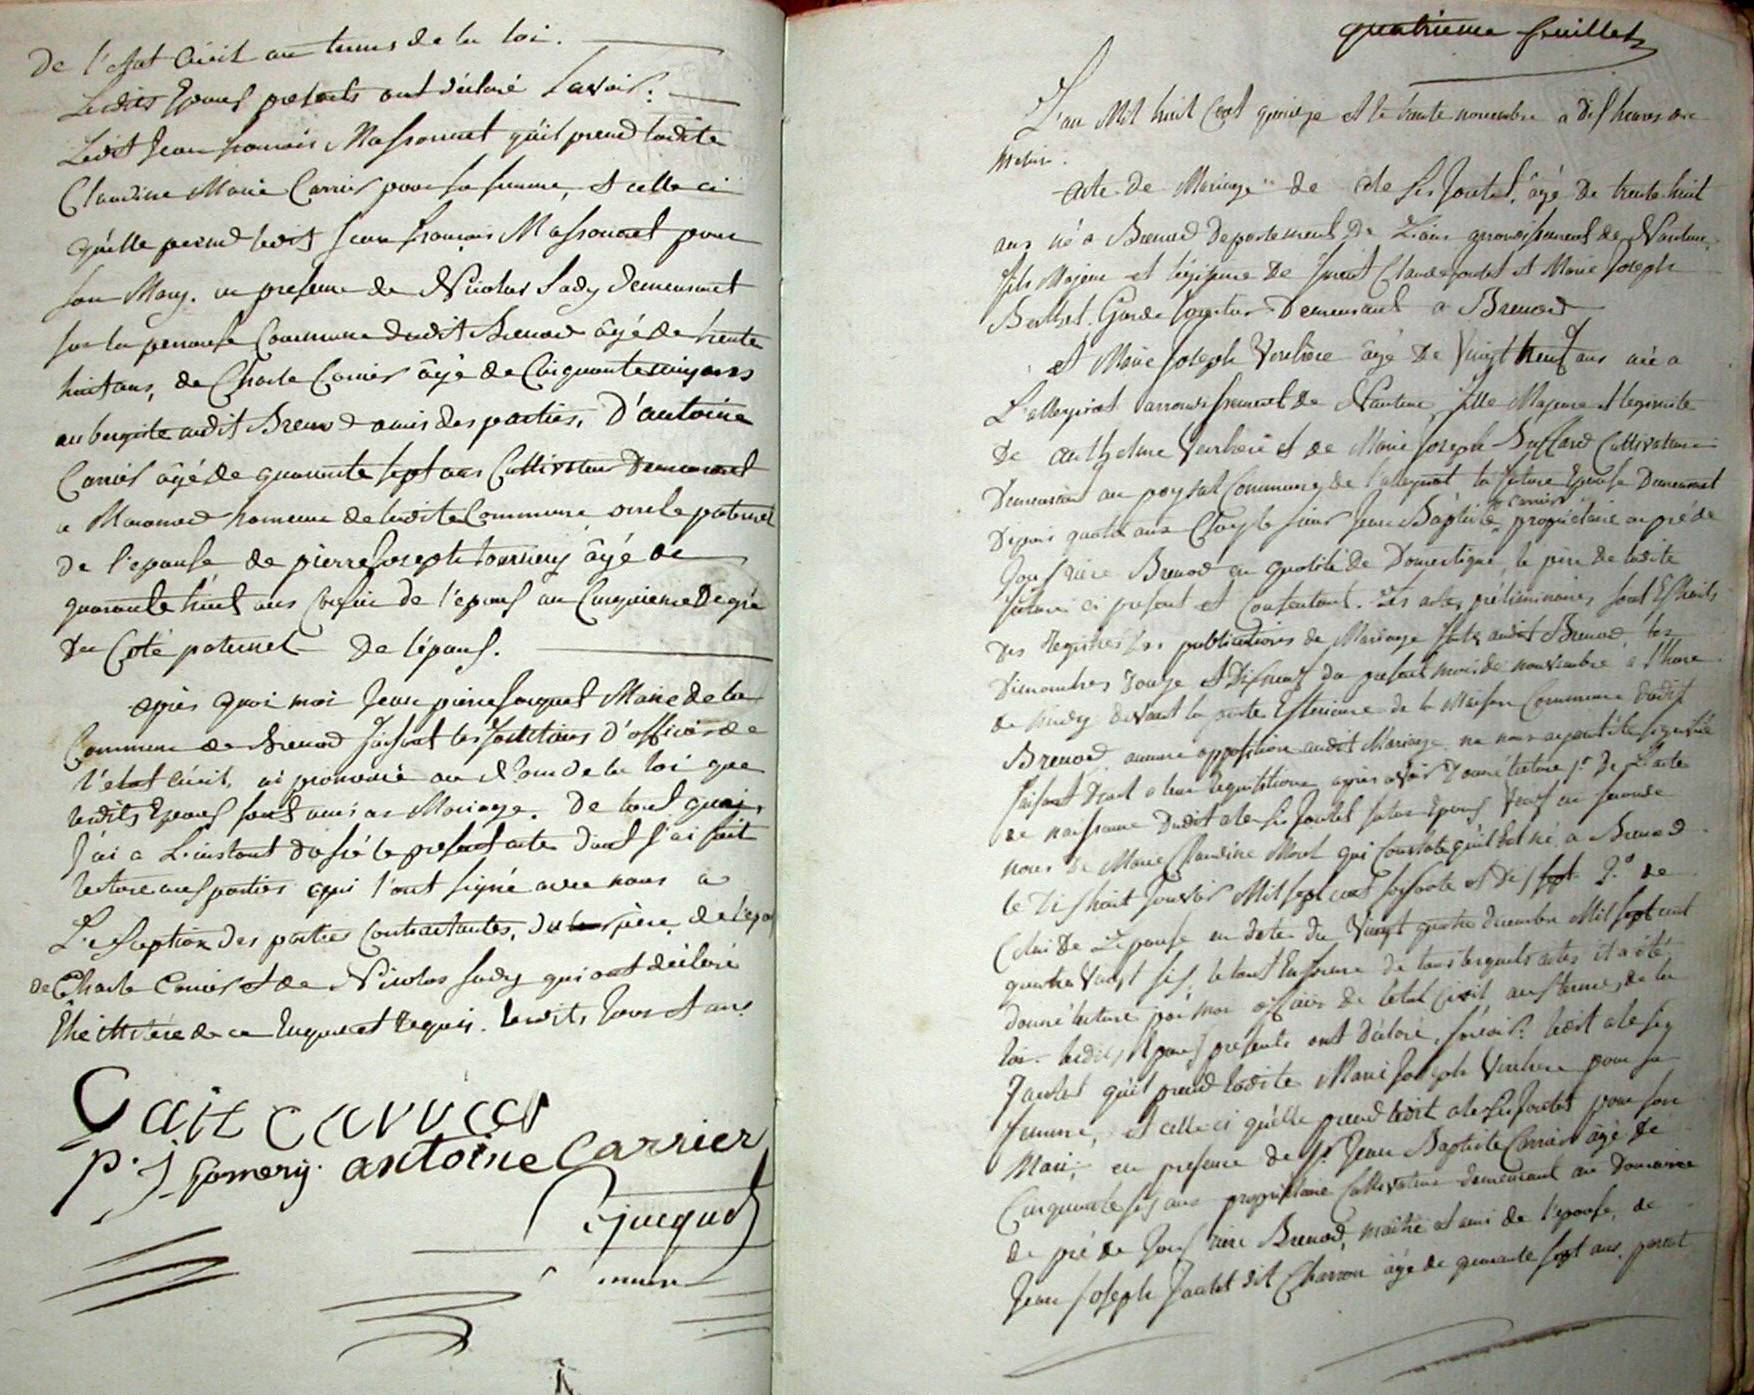 De l'Etat Civil au termes de la loi.
Lesdits Epoux presents ont déclaré savoir:
Ledit Jean francois Massonnet qu'il prend ladite
Claudine Marie Carrier pour sa femme, et celle ci
qu'elle prend ledit Jean francois Massonnet pour
son Mary. en presence de Nicolas Sady demeurant
sur la perouse Commune dudit Brenod âgé de trente
huit ans, de Charle Carrier âgé de Cinquante cinq ans
aubergiste audit Brenod amis des parties, D'antoine
Carrier âgé de quarante sept ans Cultivateur Demeurant
a Macconod hameau de ladite Commune oncle paternel
de l'epouse de pierre Joseph âgé de
quarante huit ans Cousin de l'epoux au Cinquieme Degré
Du Coté paternel De l'époux.
après quoi moi Jean pierre Jacquet Maire de la
Commune de Brenod faisant les fonctions d'officier de
l'état civil, ai prononcé au Nom de la loi que
lesdits Epoux sont unis en Mariage. De tout quoi,
J'ai a L'instant dressé le present acte dont j'ai fait
lecture aux parties qui l'ont signé avec nous a
L'exception des parties Contractantes, du père de l'epo
de Charle Carrier et de Nicolas Sady qui ont déclaré
être illitéré de ce Enquis et requis. lesdits Jour et an.
Carrier
P. J. antoine Carrier
Jacquet
maire
quatrieme feuillet
L'an Mil huit Cent quinze et le trente novembre a dix heures du
matin.
acte de Mariage de alexis Joutet, âgé De trente huit
ans né a Brenod Departement De L'ain arrondissement de Nantua,
fils Majeur et légitime De Claude Joutet et Marie Joseph
Berthet. Garde forestier Demeurant a Brenod
et Marie Joseph Verchere âgé De Vingt neuf ans née a
L'alleyriat arrondissement de Nantua fille Majeure et legitimite
De anthelme Verchere et de Marie Joseph Buffard Cultivateur
Demeurant au poysat Commune de l'alleyriat la future Epouse Demeurant
Depuis quatre ans Chez le sieur Jean Baptiste Carrier propriétaire au pré de
Joux rière Brenod en qualité de Domestique, le père de ladite
future ci present et Consentant. Les actes préliminaires sont Extraits
Des Registres les publications de Mariage faites audit Brenod les
Dimanches Douze et Dix neuf du present mois de novembre a l'heure
de midy devant la porte Exterieure de la Maison Commune dudit
Brenod aucune opposition audit Mariage ne nous ayant été signifiée
faisant Droit a leur requisition après avoir Donné lecture 1° De L'acte
de naissance Dudit alexis Joutet futur Epoux Veuf en seconde
noces De Marie Claudine Morel qui Constate qu'il Est né a Brenod
le Dix huit Janvier Mil sept cent soixante et Dix sept 2° de
Celui De L'epouse en date du Vingt quatre decembre Mil sept cent
quatre Vingt six, le tout En forme de tous lesquels actes il a été
donné lecture par moi officier de l'etat Civil aux termes de la
loi. lesdits Epoux présents ont Déclaré, savoir: ledit alexis
Joutet qu'il prend ladite Marie Joseph Verchere pour sa
femme, et celle ci qu'elle prend ledit alexis Joutet pour son
Mari; en presence de Sr. Jean Baptiste Carrier âgé De
Cinquante six ans propriétaire Cultivateur demeurant au Domaine
de pré de Joux rière Brenod, maitre et ami de l'epouse, de
Jean Joseph Joutet dit Charron âgé de quarante sept ans, parent